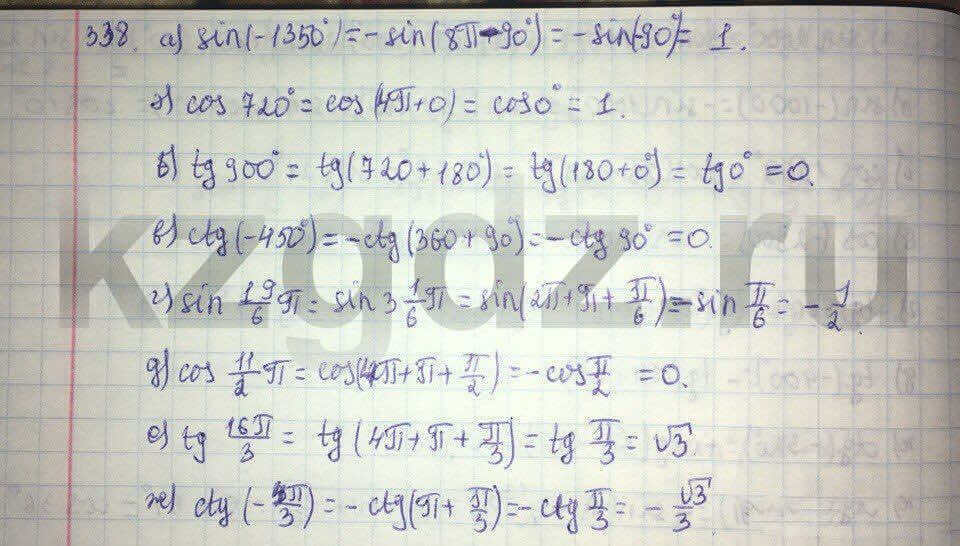 338. а) sin(-1350°)=-sin(8π-90°)=-sin(-90°)=1.
г) cos 720°=cos(4π+0)=cos0°=1.
б) tg 900°=tg(720+180°)=tg(180+0°)=tg0°=0.
в) ctg(-450°)=-ctg(360+90°)=-ctg 90°=0.
г) sin 19/6 π = sin 3 1/6 π = sin(2π+π+π/6)=-sin π/6 = -1/2.
д) cos 11/2 π = cos(4π+π+π/2)=-cos π/2 = 0.
е) tg 16π/3 = tg(4π+π+π/3)=tg π/3 = √3.
ж) ctg(-4π/3)=-ctg(π+π/3)=-ctg π/3 = -√3/3
kzgdz.ru